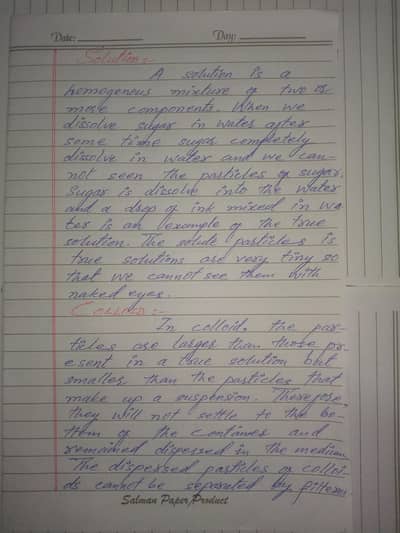 Date: Day:
Solution:-
A solution is a
homogenous mixture of two or
more components. When we
dissolve sugar in water after
some time sugar completely
dissolve in water and we can-
not seen the particles of sugar.
Sugar is dissolve into the water
and a drop of ink mixed in wa
ter is an example of the true
solution. The solute particles is
true solutions are very tiny so
that we cannot see them with
naked eyes.
Colloid:-
In colloid, the par-
ticles are larger than those pr-
esent in a true solution but
smaller than the particles that
make up a suspension. Therefore,
they will not settle to the bo-
ttem of the container and
remained dispersed in the medium.
The dispersed particles of colloi-
ds cannot be separated by filtern.
Salman Paper Product